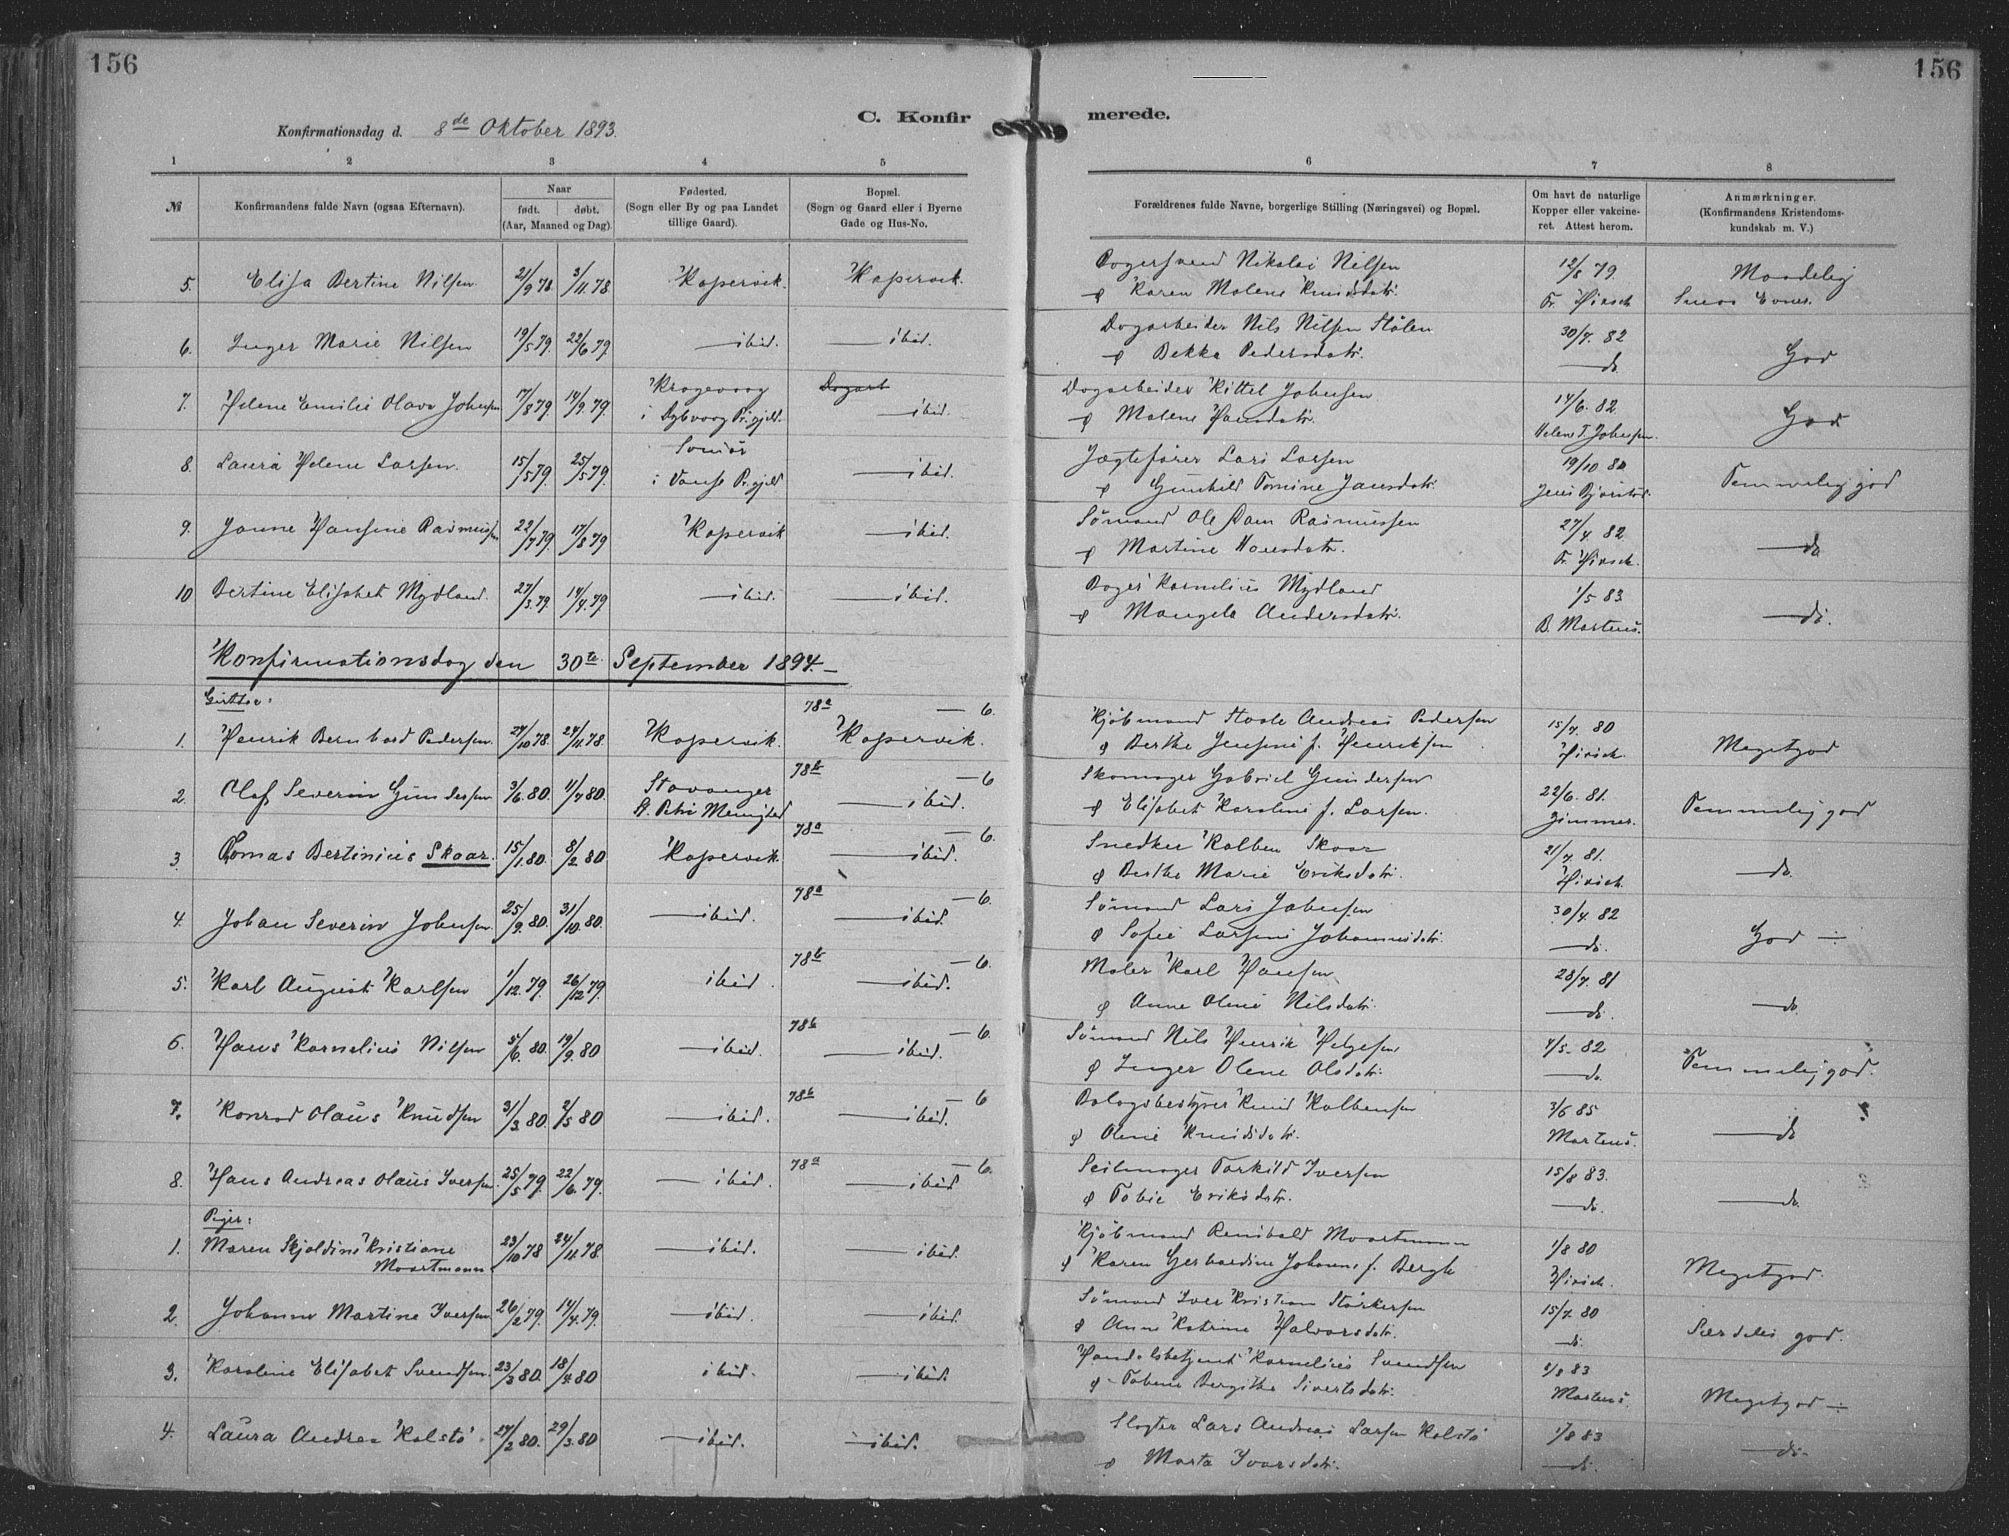 156
156
C. Konfir merede.
Konfirmationsdag d. 8de Oktober 1893.
1 2 3 4 5 6 7 8
№ Konfirmandens fulde Navn (ogsaa Efternavn). Naar født. døbt. (Aar, Maaned og Dag). Fødested. (Sogn eller By og paa Landet tillige Gaard). Bopæl. (Sogn og Gaard eller i Byerne Gade og Hus-No. Forældrenes fulde Navne, borgerlige Stilling (Næringsvei) og Bopæl. Om havt de naturlige Kopper eller vakcineret. Attest herom. Anmærkninger. (Konfirmandens Kristendomskundskab m. V.)
5. Elisa Bertine Nilsen 21/9 78 3/11 78 Kopervik. Kopervik. Nikolai Nilsen 12/8 79. Maadelig
& Karen Malene Knudsdatr. Fr. Hirsch Evner.
6. Inger Marie Nilsen 19/5 79. 22/6 79 — ibid. — ibid. Dagarbeider Nils Nilsen Stølen 30/7. 82 God
& Bekka Pedersdatr. — do.
7. Helene Emilie Olava Johnsen 17/8 79. 14/9. 79. Kragevaag Dagarb Dagarbeider Kittel Johnsen 14/6. 82. God
i Dybvaag Pr.gjeld. — ibid. & Malene Hansdatr. Johnsen.
8. Laura Helene Larsen. 15/5 79. 25/5 79. i Vanse Pr.gjeld — ibid. Jægtefører Lars Larsen 19/10 82 Temmelig god
& Gunhild Tomine Jansdatr. Jens
9. Janne Hansine Rasmussen 22/7 79. 17/8 79 Kopervik — ibid. Sømand Ole Dam Rasmussen 27/4 82 — do
& Martine Hansdatr. Fr. Hirsch.
10 Bertine Elisabet Mydland. 27/3. 79. 14/4. 79 — ibid. — ibid. Bager Kornelius Mydland 1/5 83. — do.
& Mangela Andersdatr. B. Martens.
Konfirmationsdag den 30te September 1894. —
Gutter:
78a — 6.
1. Henrik Bernhard Pedersen. 24/10 78. 24/11. 78. Kopervik. Kopervik. Kjøbmand Andreas Pedersen 15/7. 80 Megetgod
& Berthe Jensine f. Henriksen Hirsch.
78b — 6
2. Olaf Severin Gundersen 3/6. 80. 11/7 80. Stavanger — ibid. Skomager Gabriel Gundersen 22/6. 81. Temmelig god
St. Petri Menighed & Elisabet Karoline f. Larsen. Zimmer.
78a — 6.
3 Tomas Bertinius Skaar. 15/1. 80. 8/2 80 Kopervik. — ibid. Snedker Kolben Skaar 21/7. 81. — do.
& Berthe Marie Eriksdatr. Hirsch.
78a — 6.
4. Johan Severin Johnsen. 25/9. 80. 31/10. 80. — ibid. — ibid. Sømand Lars Johnsen 30/4. 82 God —
& Sofie Larsine Johannesdatr. — do.
78b — 6.
5. Karl August Karlsen 1/12. 79. 26/12 79. ibid. — ibid. Maler Karl Hansen 28/7. 81 — do.
& Anne Oline Nilsdatr. — do.
78b — 6.
6. Hans Kornelius Nilsen 5/6. 80. 19/9. 80 — ibid. — ibid. Sømand Nils Henrik Helgesen 4/5. 82 Temmelig god.
& Inger Olene Olsdatr. — do.
78b — 6
7. Konrad Olaus Knudsen 31/3. 80. 2/5 80 — ibid. — ibid. Knud Kolbensen 3/6 85 — do
& Oline Knudsdatr. Martens.
78a — 6.
8. Hans Andreas Olaus Iversen. 25/5 79. 22/6. 79. — ibid. — ibid Seilmager Torkild Iversen 15/8 83. — do.
& Tobie Eriksdatr. — do.
Piger:
1. Maren Skjoldine Kristiane Maartmann. 23/10 78 24/11. 78. — ibid. — ibid. Kjøbmand Reinhold Maartmann 1/8 80 Megetgod.
& Karen Gerhardine Johanne f. Bergh Hirsch.
2. Johanne Martine Iversen 26/2 79. 14/4. 79. — ibid. — ibid. Sømand Iver Kristian Størkersen 15/7. 80 Særdeles god.
& Anne Katrine Halvorsdatr. do.
3. Karoline Elisabet Svendsen. 23/3 80. 18/4. 80 ibid. — ibid. Handelsbetjent Kornelius Svendsen 1/8 83 Megetgod —
& Tobine Bergithe Sivertsdatr. Martens.
4. Laura Andrea Kolstø 24/2 80. 29/3. 80 — ibid. — ibid. Slagter Lars Andreas Larsen Kolstø 1/8 83 — do —
& Marta Ivarsdatr. — do.